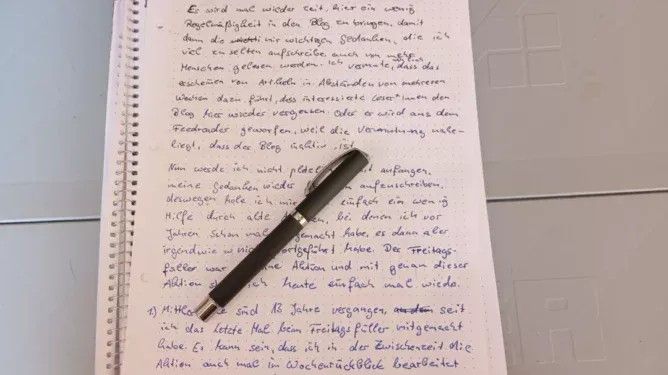 Es wird mal wieder Zeit, hier ein wenig
Regelmäßigkeit in den Blog zu bringen, damit
dann die mir wichtigen Gedanken, die ich
viel zu selten aufschreibe auch von mehr
Menschen gelesen werden. Ich vermute nämlich, dass das
erscheinen von Artikeln in Abständen von mehreren
Wochen dazu führt, dass interessierte Leser*innen den
Blog hier wieder vergessen. Oder er wird aus dem
Feedreader geworfen, weil die Vermutung nahe-
liegt, dass der Blog inaktiv ist.
Nun werde ich nicht anfangen,
meine Gedanken wieder aufzuschreiben.
deswegen hole ich einfach ein wenig
Hilfe durch alte bei denen ich vor
Jahren schon mal habe, es dann aber
irgendwie habe. Der Freitags-
füller war Aktion und mit genau dieser
Aktion ich heute einfach mal wieder.
1) sind 13 Jahre vergangen, seit
ich das letzte Mal beim Freitagsfüller mitgemacht
habe. Es kann sein, dass ich in der Zwischenzeit die
Aktion auch mal im Wochenrückblick bearbeitet